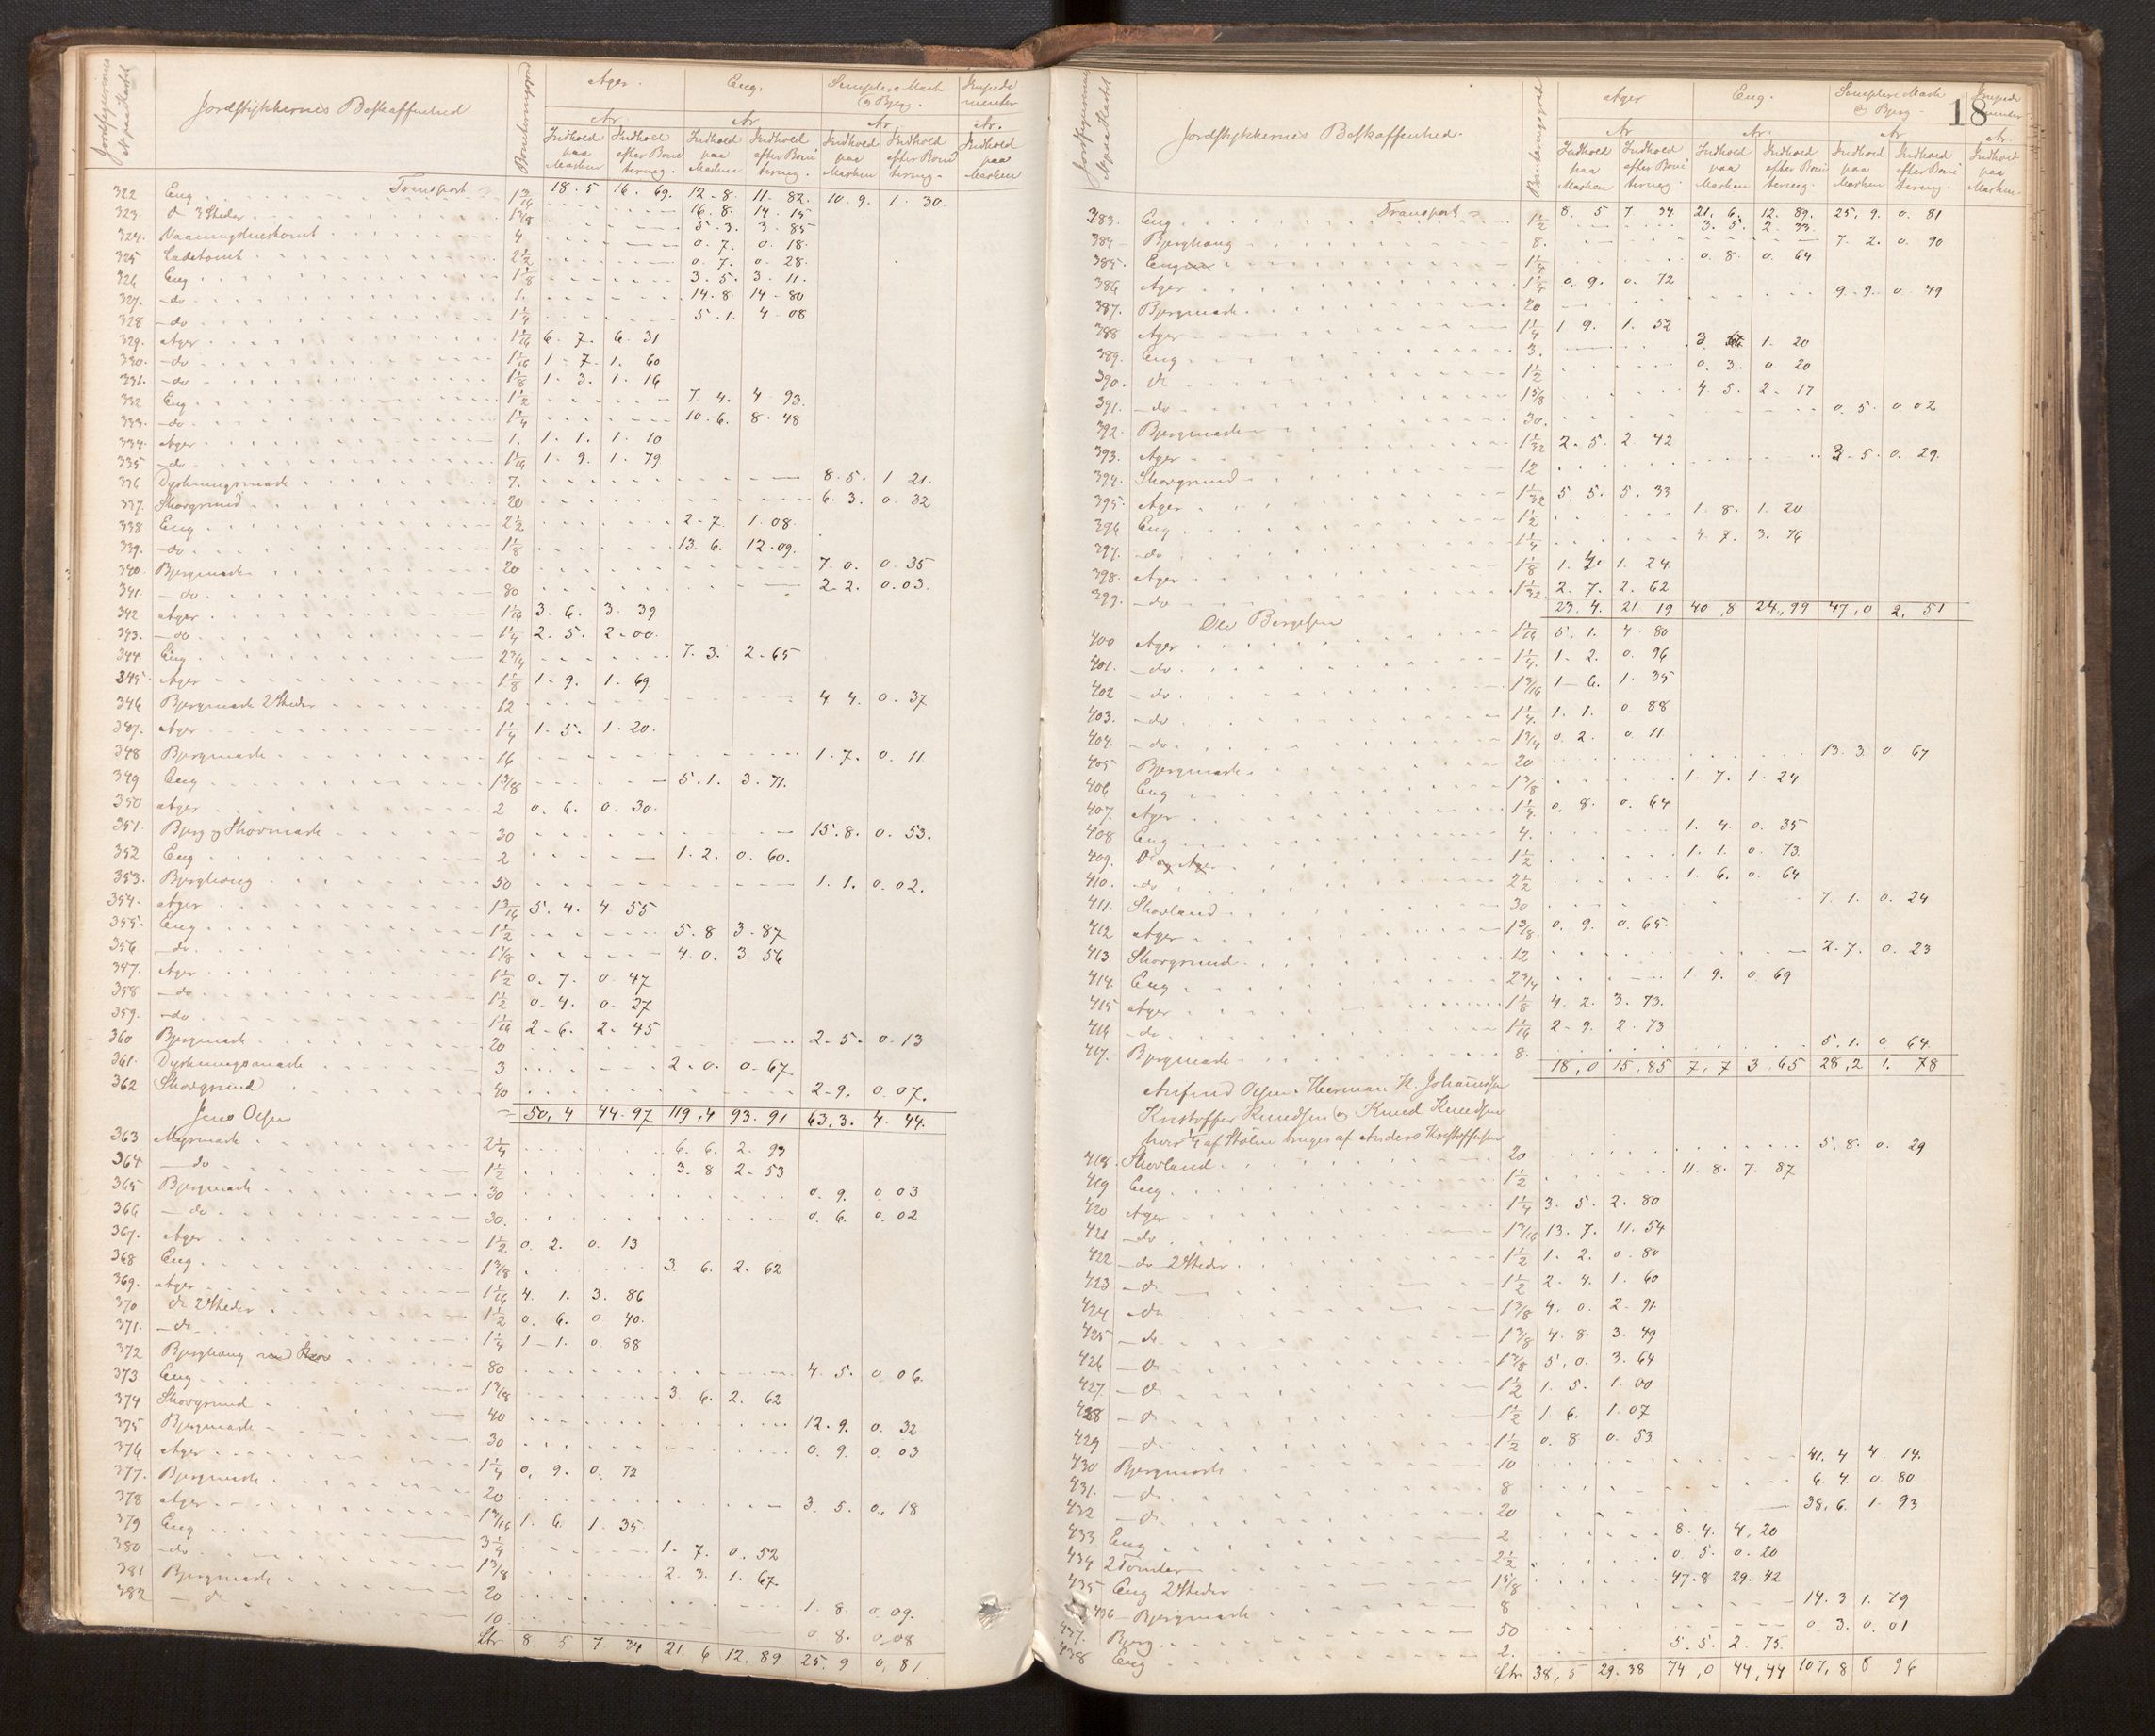 Jordstykkernes Beskaffenhed Ager. Eng. Simplere Mark og Bjerg.
Ar Ar Ar Ar.
Indhold paa Marken Indhold efter Bonitering. Indhold paa Marken Indhold efter Bonitering. Indhold paa Marken Indhold efter Bonitering. Indhold paa Marken
Transport 18.5 16.69. 12.8. 11.82. 10.9. 1.30.
322 Eng 16.8. 14.15
323. do 3 Steder 1 3/8 5.3. 3.85
324. Vaaningshustomt 4 0.7. 0.18.
325 Ladetomt 2 1/2 0.7. 0.28.
326 Eng 1 1/8 3.5. 3.11.
327. do 1. 14.8 14.80
328 do 1 1/4 5.1. 4.08
329. Ager 1 1/16 6.7. 6.31
330. do 1 1/16 1.7. 1.60
331. do 1 1/8 1.3. 1.16
332 Eng 1 1/2 7.4. 4.93.
333. do 1 1/4 10.6. 8.48
334. Ager 1. 1.1. 1.10
335 do 1 1/16 1.9. 1.79
336 Dyrkningsmark 7. 8.5. 1.21.
337. Skovgrund 20 6.3. 0.32
338 Eng 2 1/2 2.7. 1.08.
339. do 1 1/8 13.6. 12.09.
340. Bjergmark 20 7.0. 0.35
341. do 80 2.2. 0.03.
342 Ager 1 1/16 3.6. 3.39
343. do 1 1/4 2.5. 2.00.
344. Eng 2 3/4 7.3. 2.65
345. Ager 1 1/8 1.9. 1.69
346 Bjergmark 2 Steder 12 4.4. 0.37
347. Ager 1 1/4 1.5. 1.20.
348 Bjergmark 16 1.7. 0.11
349 Eng 1 3/8 5.1. 3.71.
350 Ager 2 0.6. 0.30.
351. Bjerg og Skovmark 30 15.8. 0.53.
352 Eng 2 1.2. 0.60.
353. Bjerghaug 50 1.1. 0.02.
354. Ager 1 3/16 5.4. 4.55
355. Eng 1 1/2 5.8 3.87
356 do 1 1/8 4.0. 3.56
357. Ager 1 1/2 0.7. 0.47
358 do 1 1/2 0.4. 0.27
359. do 1 1/16 2.6. 2.45
360 Bjergmark 20 2.5. 0.13
361. Dyrkningsmark 3 2.0. 0.67
362 Skovgrund 40 2.9. 0.07.
50,4 44.97 119,4 93.91 63,3. 4.44.
Jens Olsen
363 Myrmark 2 1/4 6.6. 2.93
364 do 1 1/2 3.8 2.53
365 Bjergmark 30 0.9. 0.03
366 do 30. 0.6. 0.02
367. Ager 1 1/2 0.2. 0.13
368 Eng 1 3/8 3.6. 2.62
369. Ager 1 1/16 4.1. 3.86
370 do 2 Steder 1 1/2 0.6. 0.40.
371. do 1 1/4 1.1. 0.88
372 Bjerghaug 80 4.5. 0.06.
373 Eng 1 3/8 3.6. 2.62
374 Skovgrund 40 12.9. 0.32
375 Bjergmark 30 0.9. 0.03
376 Ager 1 1/4 0.9. 0.72
377. Bjergmark 20 3.5. 0.18
378 Ager 1 3/16 1.6. 1.35
379 Eng 3 1/4 1.7. 0.52
380 do 1 3/8 2.3. 1.67
381 Bjergmark 20 1.8. 0.09.
382 do 10 0.8. 0.08
Ltr. 8.5 7.34 21.6 12.89 25.9 0.81.
18
Jordstykkernes Beskaffenhed. Ager Eng. Simplere Mark og Bjerg.
Ar Ar. Ar Ar
Indhold paa Marken Indhold efter Bonitering. Indhold paa Marken Indhold efter Bonitering. Indhold paa Marken Indhold efter Bonitering. Indhold paa Marken.
Transport 8.5 7.34. 21.6. 12.89. 25.9. 0.81
383. Eng 1 1/2 3.5. 2.33
384 Bjerghaug 8. 7.2. 0.90
385. Eng 1 1/4 0.8. 0.64
386 Ager 1 1/4 0.9. 0.72
387. Bjergmark 20 9.9. 0.49
388 Ager 1 1/4 1.9. 1.52
389. Eng 3. 1.20
390. do 1 1/2 0.3. 0.20
391. do 1 5/8 4.5. 2.77
392. Bjergmark 30. 0.5. 0.02
393. Ager 1 1/32 2.5. 2.42
394. Skovgrund 12 3.5. 0.29.
395. Ager 1 1/32 5.5. 5.33
396 Eng 1 1/2 1.8. 1.20
397. do 1 1/4 4.7. 3.76
398. Ager 1 1/8 1.4. 1.24
399. do 1 1/32 2.7. 2.62
23.4. 21.19 40,8 24,99 47,0 2,51
Ole Bergesen
400 Ager 1 1/16 5.1. 4.80
401. do 1 1/4. 1.2. 0.96
402 do 1 3/16 1.6. 1.35
403. do 1 1/4. 1.1. 0.88
404. do 1 3/4 0.2. 0.11
405 Bjergmark. 20 13.3. 0.67
406 Eng 1 3/8 1.7. 1.24
407. Ager 1 1/4. 0.8. 0.64
408 Eng 4. 1.4. 0.35
409. Do 1 1/2 1.1. 0.73
410. do 2 1/2 1.6. 0.64
411. Skovland 30 7.1. 0.24
412 Ager 1 3/8. 0.9. 0.65.
413. Skovgrund 12 2.7. 0.23
414. Eng 2 3/4 1.9. 0.69
415 Ager 1 1/8 4.2. 3.73.
416 do 1 1/16 2.9. 2.73
417. Bjergmark 8. 5.1. 0.64.
18,0 15,85 7,7 3.65 28,2 1.78
Anfind Olsen. Herman K. Johannesen
Kristoffer Knudsen og Knud Knudsen
hver 1/4 af Stølen bruges af Anders Kristoffersen
418. Skovland 20 5.8. 0.29
419 Eng 1 1/2 11.8. 7.87
420 Ager 1 1/4 3.5. 2.80
421 do 1 3/16 13.7. 11.54
422 do 2 Steder 1 1/2 1.2. 0.80
423 do 1 1/2 2.4. 1.60
424 do 1 3/8 4.0. 2.91
425 do 1 3/8 4.8. 3.49
426 do 1 3/8 5,0. 3.64
427. do 1 1/2 1.5. 1.00
428 do 1 1/2 1.6. 1.07
429 do 1 1/2 0.8 0.53
430 Bjergmark 10 41.4 4.14.
431. do 8 6.4. 0.80
432 do 20 38.6. 1.93
433 Eng 2 8.4. 4,20
434 2 Tomter 2 1/2 0.5. 0.20
435 Eng 2 Steder 1 5/8 47.8 29.42
436 Bjergmark 8 14.3 1.79
437. Bjerg 50 0.3. 0.01
438 Eng 2. 5.5. 2.75.
Ltr. 38,5 29.38 74,0 44,44 107,8 8.96